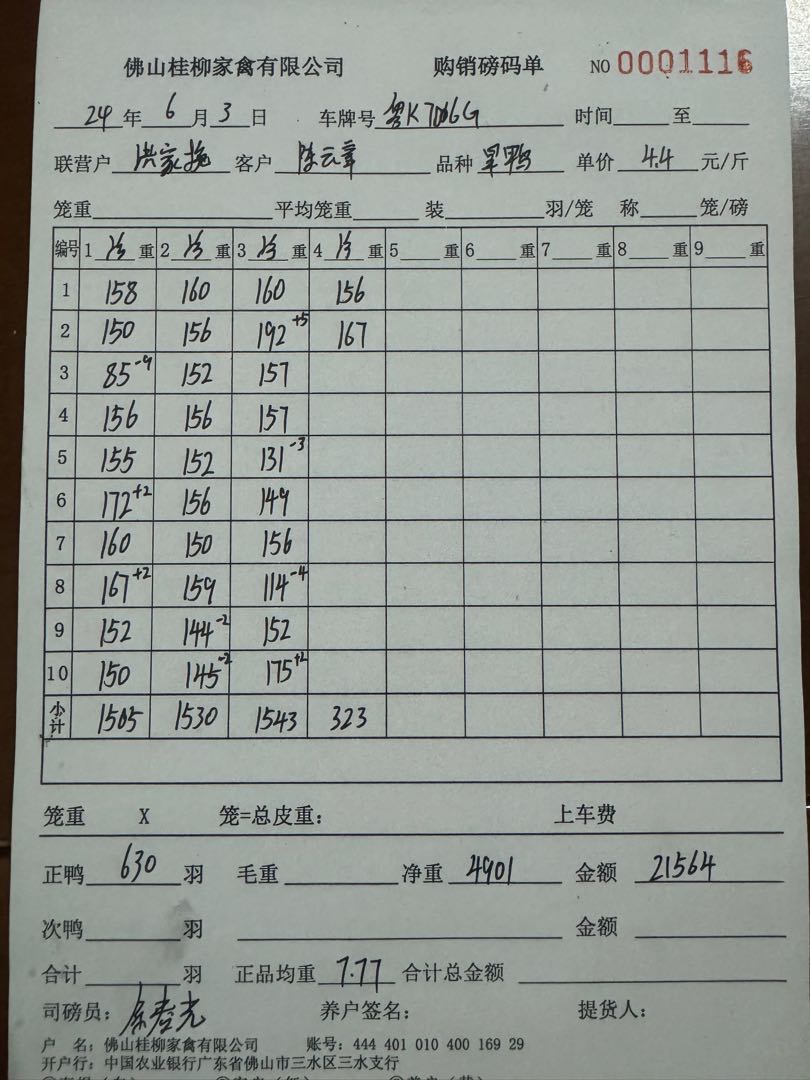 佛山桂柳家禽有限公司 购销磅码单 NO 0001116
24 年 6 月 3 日 车牌号 粤K7006G 时间 至
联营户 洪家挽 客户 陈云章 品种 旱鸭 单价 4.4 元/斤
笼重 平均笼重 装 羽/笼 称 笼/磅
编号 1 净 重 2 净 重 3 净 重 4 净 重 5 重 6 重 7 重 8 重 9 重
1 158 160 160 156
2 150 156 192 +5 167
3 85 -9 152 157
4 156 156 157
5 155 152 131 -3
6 172 +2 156 149
7 160 150 156
8 167 +2 159 114 -4
9 152 144 -2 152
10 150 145 -2 175 +2
小计 1505 1530 1543 323
笼重 X 笼=总皮重: 上车费
正鸭 630 羽 毛重 净重 4901 金额 21564
次鸭 羽 金额
合计 羽 正品均重 7.77 合计总金额
司磅员: 养户签名: 提货人:
户 名: 佛山桂柳家禽有限公司 账号: 444 401 010 400 169 29
开户行: 中国农业银行广东省佛山市三水区三水支行